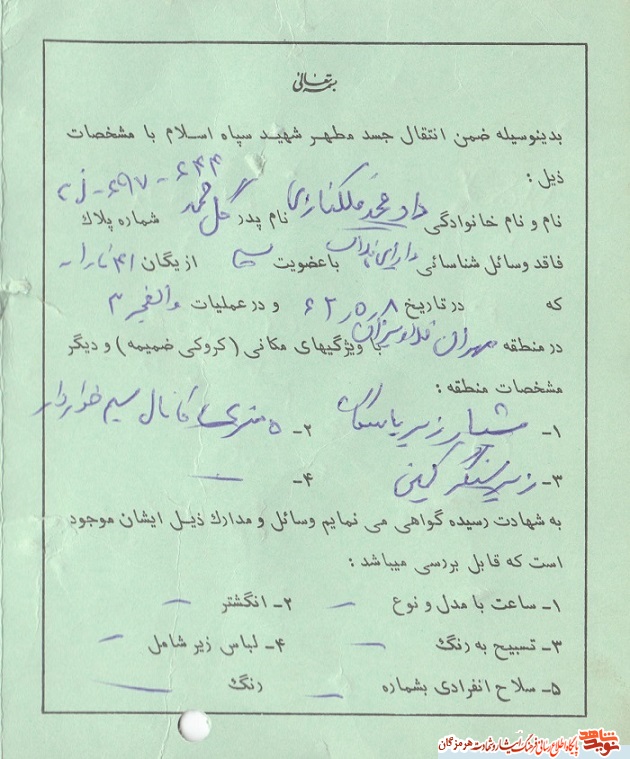 بسمه تعالی
بدینوسیله ضمن انتقال جسد مطهر شهید سپاه اسلام با مشخصات
ذیل :
نام و نام خانوادگی داد محمد ملکناری نام پدر گل محمد شماره پلاك ۶۴۴ - ۶۹۷ -
فاقد وسائل شناسائی دارای پلاک با عضویت بسیج از یگان ۴۱ ثاراله
که در تاریخ ۶۲٫۵٫۸ و در عملیات والفجر ۳
در منطقه مهران قلاویزان با ویژگیهای مکانی (کروکی ضمیمه) و دیگر
مشخصات منطقه :
۱- شیار زیر پاسگاه ۲- ۵ متری کانال سیم خاردار
۳- زیر سنگر کمین ۴- —
به شهادت رسیده گواهی می نمایم وسائل و مدارك ذیل ایشان موجود
است که قابل بررسی میباشد :
۱- ساعت با مدل و نوع — ۲- انگشتر —
۳- تسبیح به رنگ — ۴- لباس زیر شامل —
۵- سلاح انفرادی بشماره — رنگ —
نوید شاهد
پایگاه اطلاع رسانی فرهنگ ایثار و شهادت هرمزگان